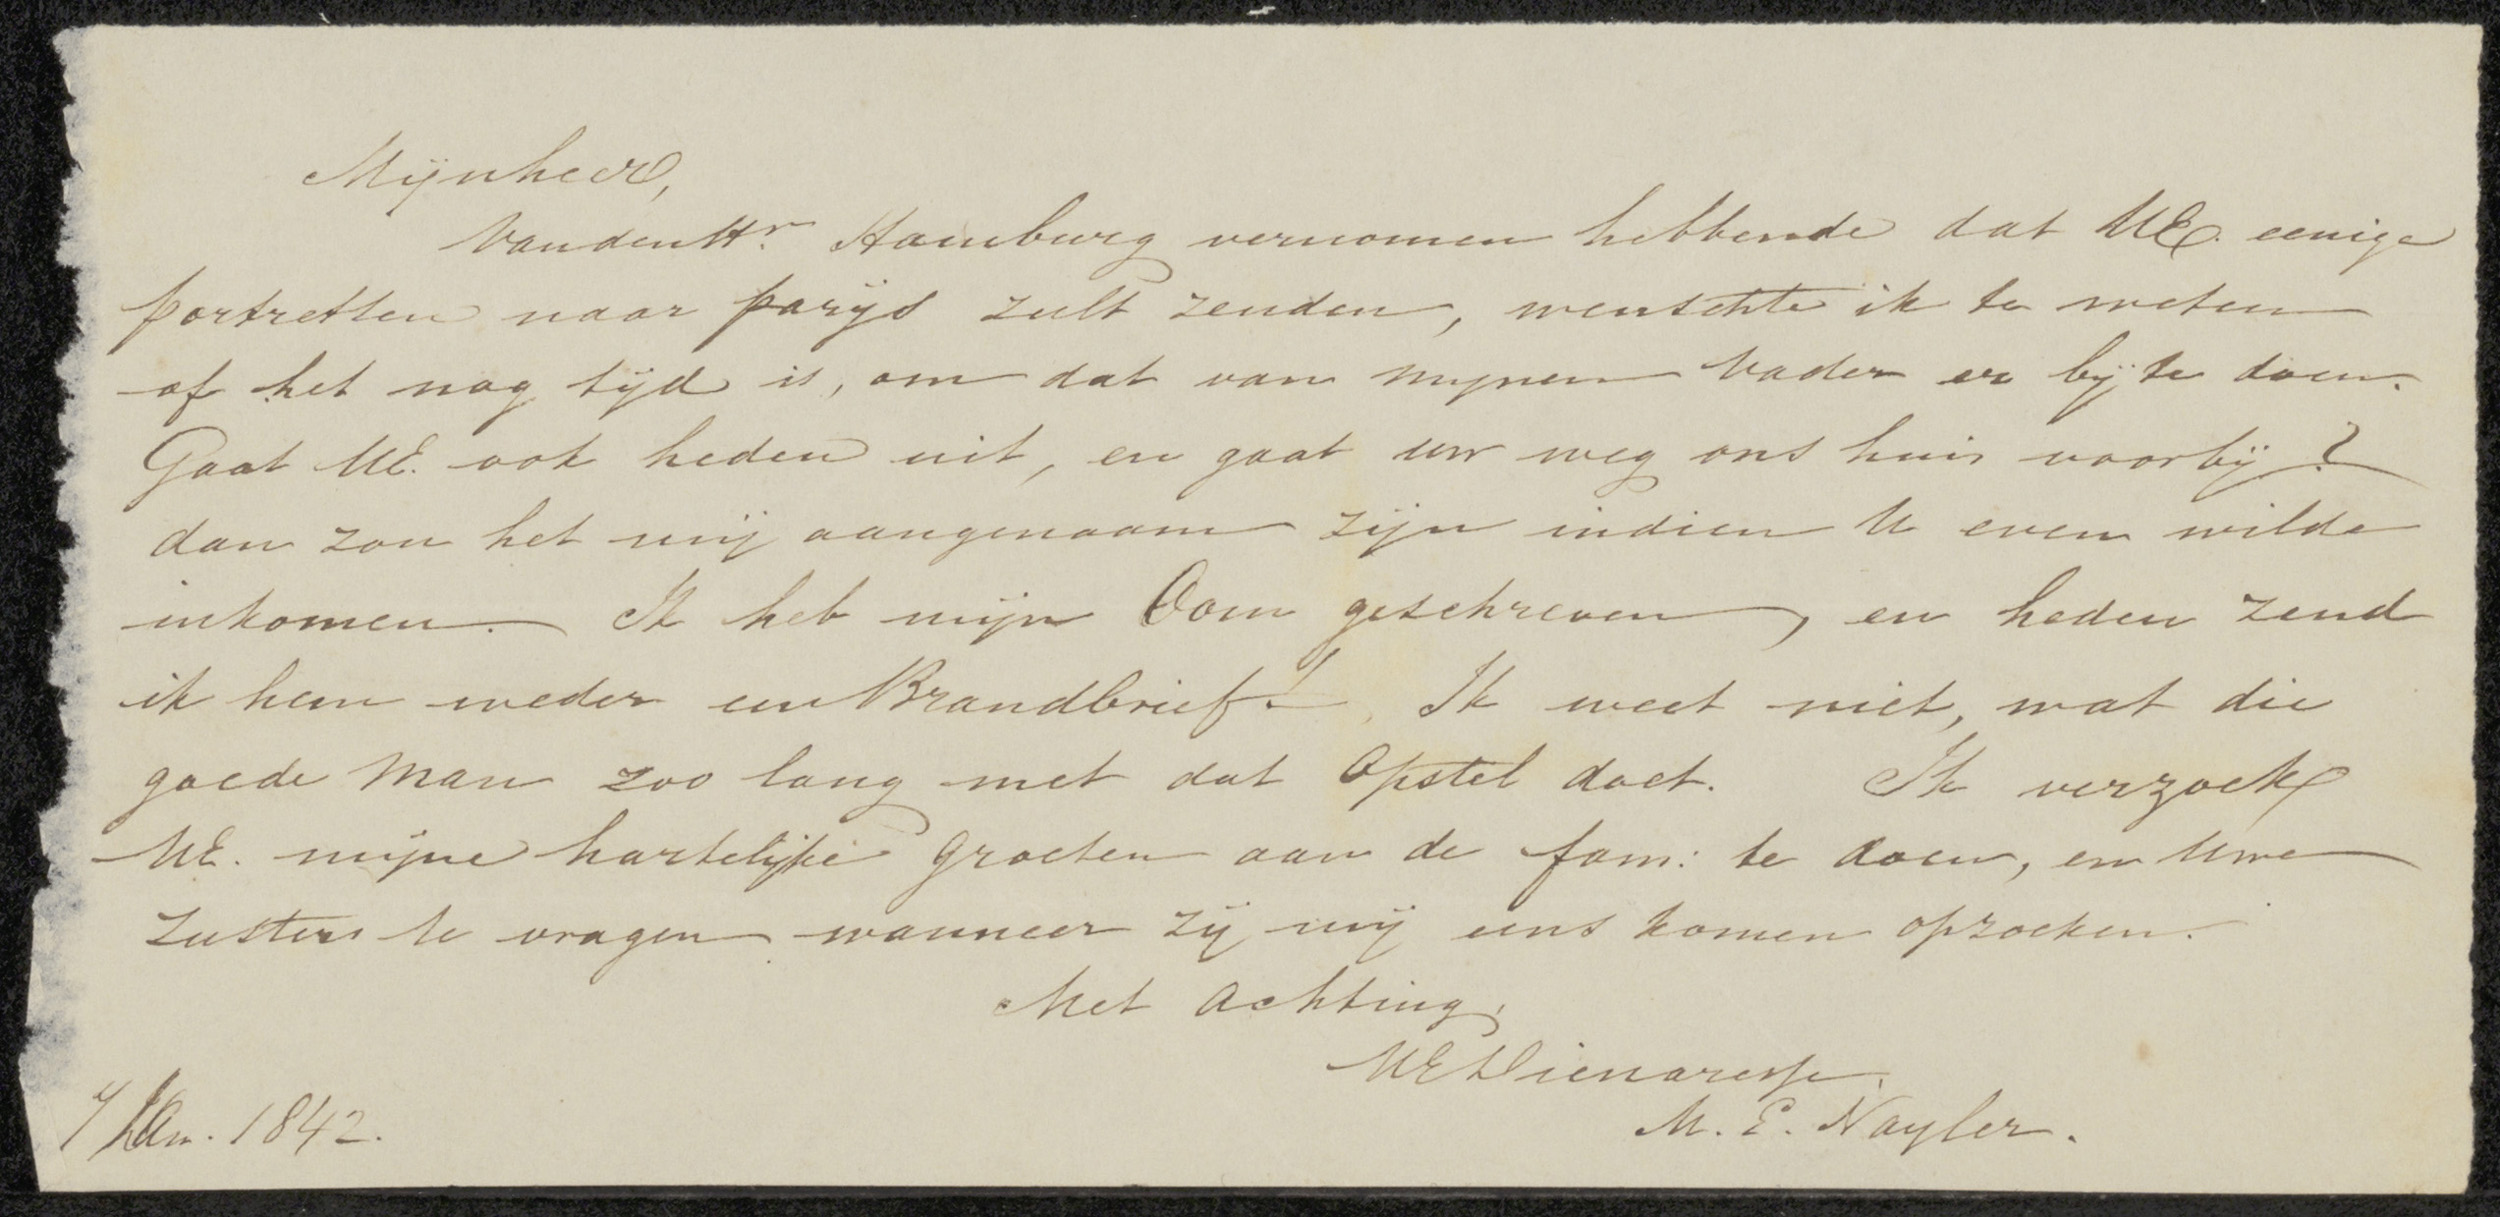 Mijnheer,
Van den Hr. Hamburg vernomen hebbende dat UE. eenige
portretten naar parijs zult zenden, wenschte ik te weten
of het nog tijd is, om dat van mynen Vader er bij te doen.
Gaat UE. ook heden uit, en gaat uw weg ons huis voorbij?
dan zou het mij aangenaam zijn indien U even wilde
inkomen. Ik heb mijn Oom geschreven, en heden zend
ik hem weder een Brandbrief! Ik weet niet, wat die
goede Man zoo lang met dat Opstel doet. Ik verzoek
UE. mijne hartelijke Groeten aan de fam: te doen, en Uwe
zusters te vragen wanneer zij mij eens komen opzoeken.
Met Achting,
UE Dienaresse.
M. E. Nayler.
7 Jan. 1842.